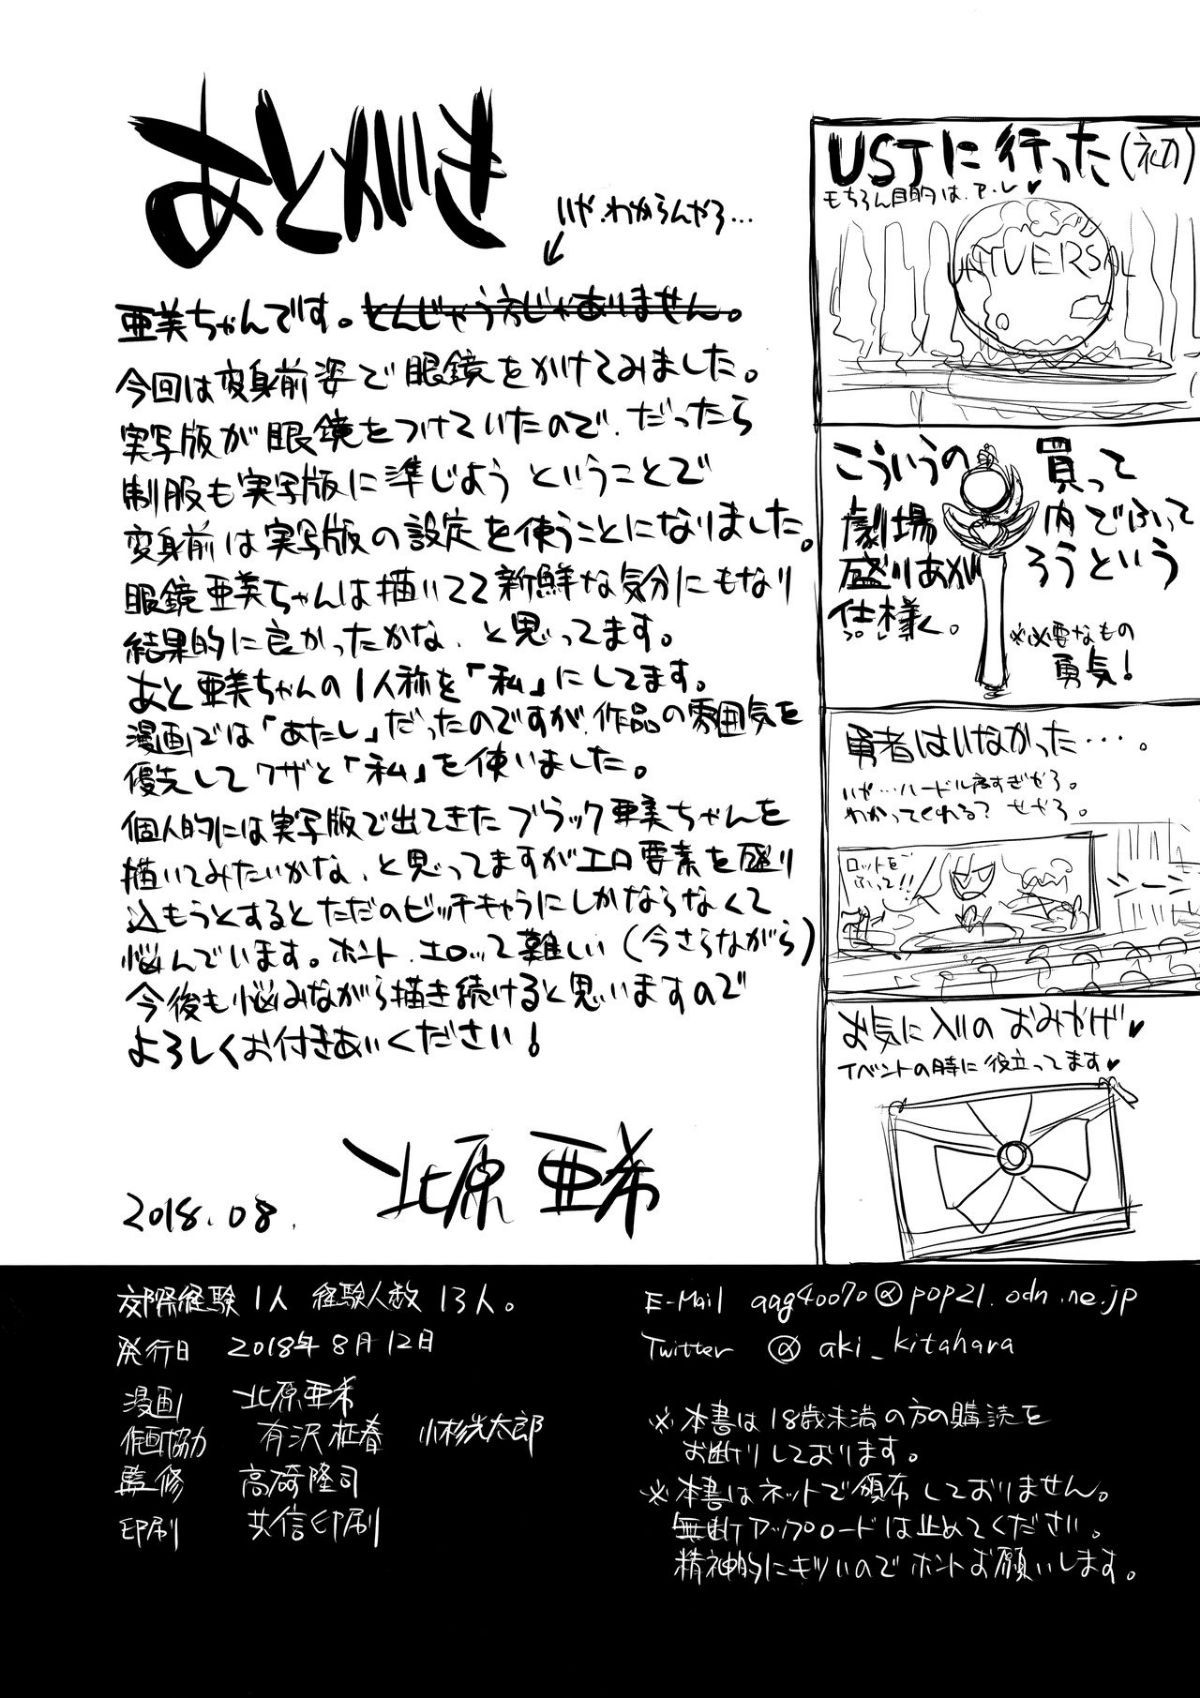 あとがき
いや、わからんやろ…
亜美ちゃんです。とんじゃう方じゃありません。
今回は変身前姿で眼鏡をかけてみました。
実写版が眼鏡をつけていたので、だったら
制服も実写版に準じようということで
変身前は実写版の設定を使うことになりました。
眼鏡亜美ちゃんは描いてて新鮮な気分にもなり
結果的に良かったかな、と思ってます。
あと亜美ちゃんの1人称を「私」にしてます。
漫画では「あたし」だったのですが、作品の雰囲気を
優先してワザと「私」を使いました。
個人的には実写版で出てきたブラック亜美ちゃんを
描いてみたいかな、と思ってますがエロ要素を盛り
込もうとするとただのビッチキャラにしかならなくて
悩んでいます。ホント、エロって難しい(今さらながら)
今後も悩みながら描き続けると思いますので
よろしくお付きあいください!
2018.08.
北原亜希
USJに行った(初)
もちろん目的は、ア・レ♥
UNIVERSAL
こういうの買って
劇場内でふって
盛りあがろうという
仕様。
※必要なもの
勇気!
勇者はいなかった…。
いや…ハードル高すぎやろ。
わかってくれる?せやろ。
ロットを
ふって!!
シーン
お気に入りのおみやげ♥
イベントの時に役立ってます♥
交際経験1人 経験人数13人。
発行日 2018年8月12日
漫画 北原亜希
作画協力 有沢柾春 小杉光太郎
監修 高崎隆司
印刷 共信印刷
E-Mail aag40070@pop21.odn.ne.jp
Twitter @aki_kitahara
※本書は18歳未満の方の購読を
お断りしております。
※本書はネットで頒布しておりません。
無断アップロードは止めてください。
精神的にキツいのでホントお願いします。